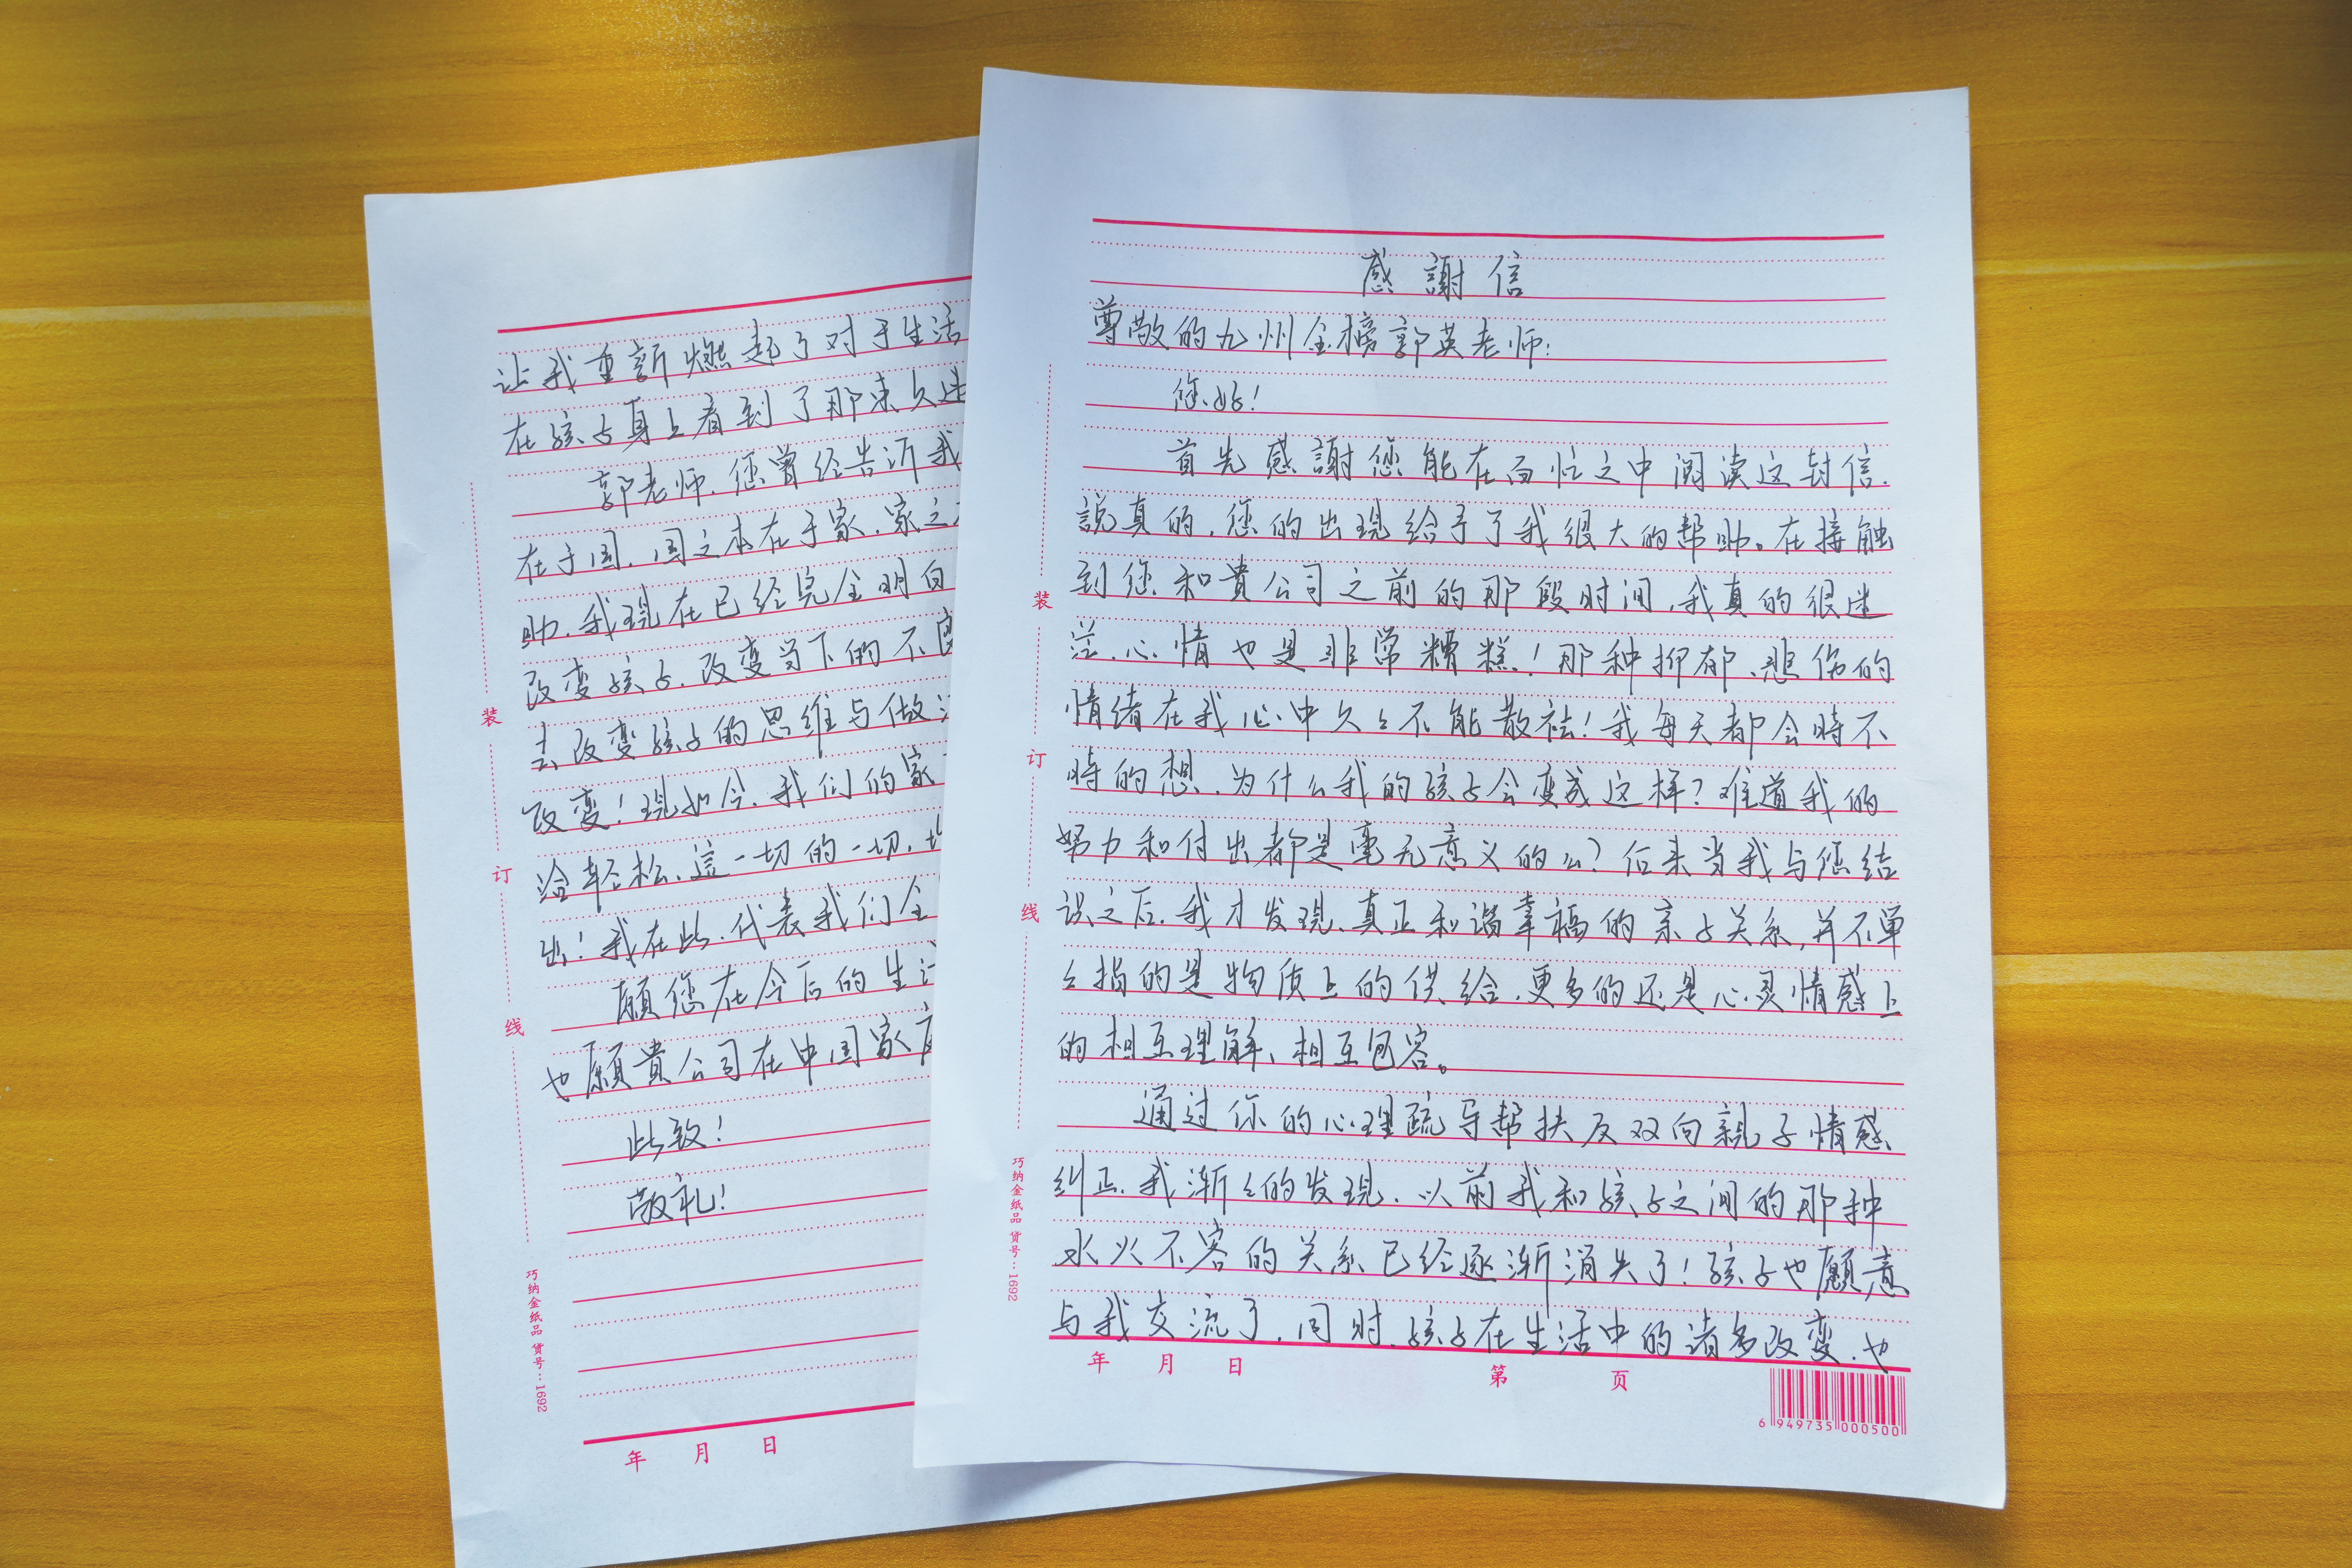 感謝信
尊敬的九州金榜郭英老师:
您好!
首先感謝您能在百忙之中阅读这封信.
説真的,您的出现给予了我很大的帮助。在接触
到您和貴公司之前的那段时间,我真的很迷
茫,心情也是非常糟糕!那种抑郁、悲伤的
情绪在我心中久々不能散祛!我每天都会時不
時的想,为什么我的孩子会变成这样?难道我的
努力和付出都是毫无意义的么?后来当我与您结
识之后,我才发现,真正和谐幸福的亲子关系,并不单
々指的是物质上的供给,更多的还是心灵情感上
的相互理解、相互包容。
通过你的心理疏导帮扶及双向親子情感
纠正,我渐々的发现,以前我和孩子之间的那种
水火不容的关系已经逐渐消失了!孩子也願意
与我交流了,同时,孩子在生活中的诸多改变,也
年 月 日 第 页
6 949735 000500
装
订
线
巧纳金纸品 货号:1692
让我重新燃起了对于生活
在孩子身上看到了那束久违
郭老师,您曾经告诉我
在于国,国之本在于家,家之
助,我现在已经完全明白
改变孩子,改变当下的不
去改变孩子的思维与做
改变!现如今,我们的家
洽轻松,這一切的一切,
出!我在此,代表我们全
願您在今后的生
也願貴公司在中国家
此致!
敬礼!
年 月 日
装
订
线
巧纳金纸品 货号:1692